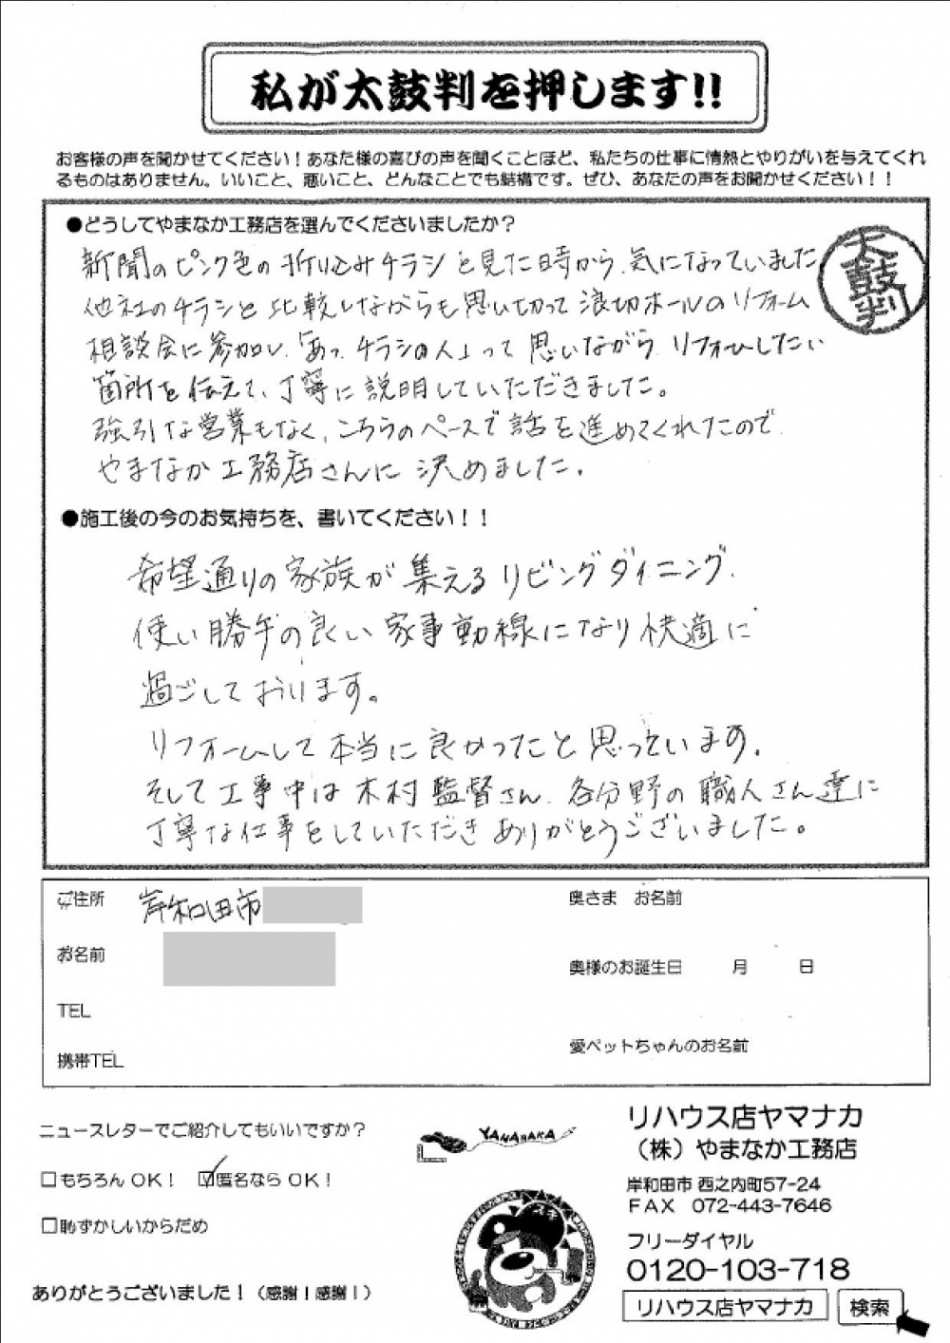 私が太鼓判を押します!!
お客様の声を聞かせてください！あなた様の喜びの声を聞くことほど、私たちの仕事に情熱とやりがいを与えてくれ
るものはありません。いいこと、悪いこと、どんなことでも結構です。ぜひ、あなたの声をお聞かせください！！
●どうしてやまなか工務店を選んでくださいましたか？
太鼓判
新聞のピンク色の折り込みチラシを見た時から、気になっていました
他社のチラシと比較しながらも思い切って浪切ホールのリフォーム
相談会に参加し、「あっ、チラシの人」って思いながら、リフォームしたい
箇所を伝えて、丁寧に説明していただきました。
強引な営業もなく、こちらのペースで話を進めてくれたので
やまなか工務店さんに決めました。
●施工後の今のお気持ちを、書いてください！！
希望通りの家族が集えるリビングダイニング、
使い勝手の良い家事動線になり快適に
過ごしております。
リフォームして本当に良かったと思っています。
そして工事中は木村監督さん、各分野の職人さん達に
丁寧な仕事をしていただきありがとうございました。
ご住所 岸和田市
お名前
TEL
携帯TEL
奥さま お名前
奥様のお誕生日 月 日
愛ペットちゃんのお名前
ニュースレターでご紹介してもいいですか？
□もちろんOK！ ☑匿名ならOK！
□恥ずかしいからだめ
ありがとうございました！（感謝！感謝！）
YAMANAKA
リハウス店ヤマナカ
（株）やまなか工務店
岸和田市 西之内町57-24
FAX 072-443-7646
フリーダイヤル
0120-103-718
リハウス店ヤマナカ 検索